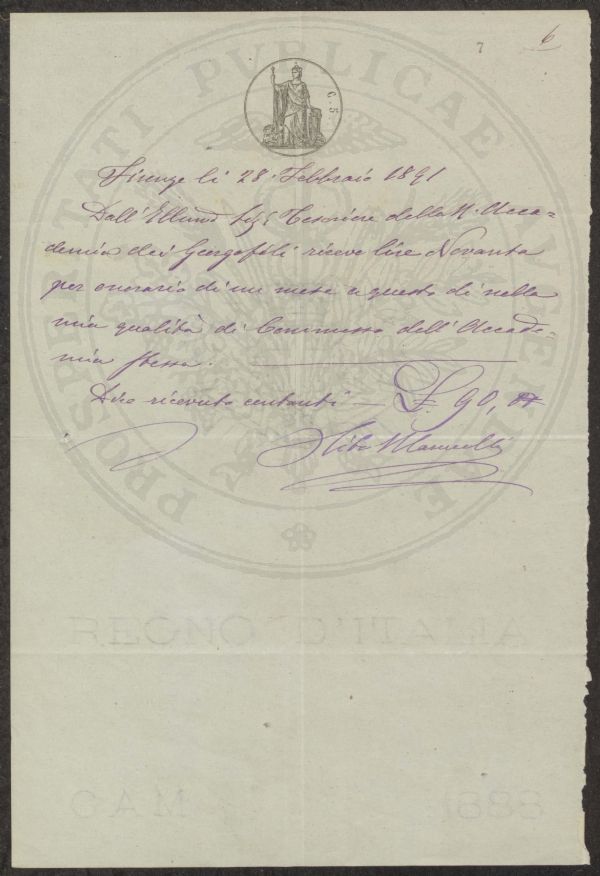 7 6
PROSPERITATI PVBLICAE AVGENDAE
C. 5.
Firenze li 28. Febbraio 1891
Dall' Illmo Sig. Tesoriere della R. Acca=
demia dei Georgofili riceve lire Novanta
per onorario di un mese a questo dì nella
mia qualità di Commesso dell' Accade=
mia stessa.
Dico ricevute contanti — L. 90,
REGNO D'ITALIA
MAG 1888